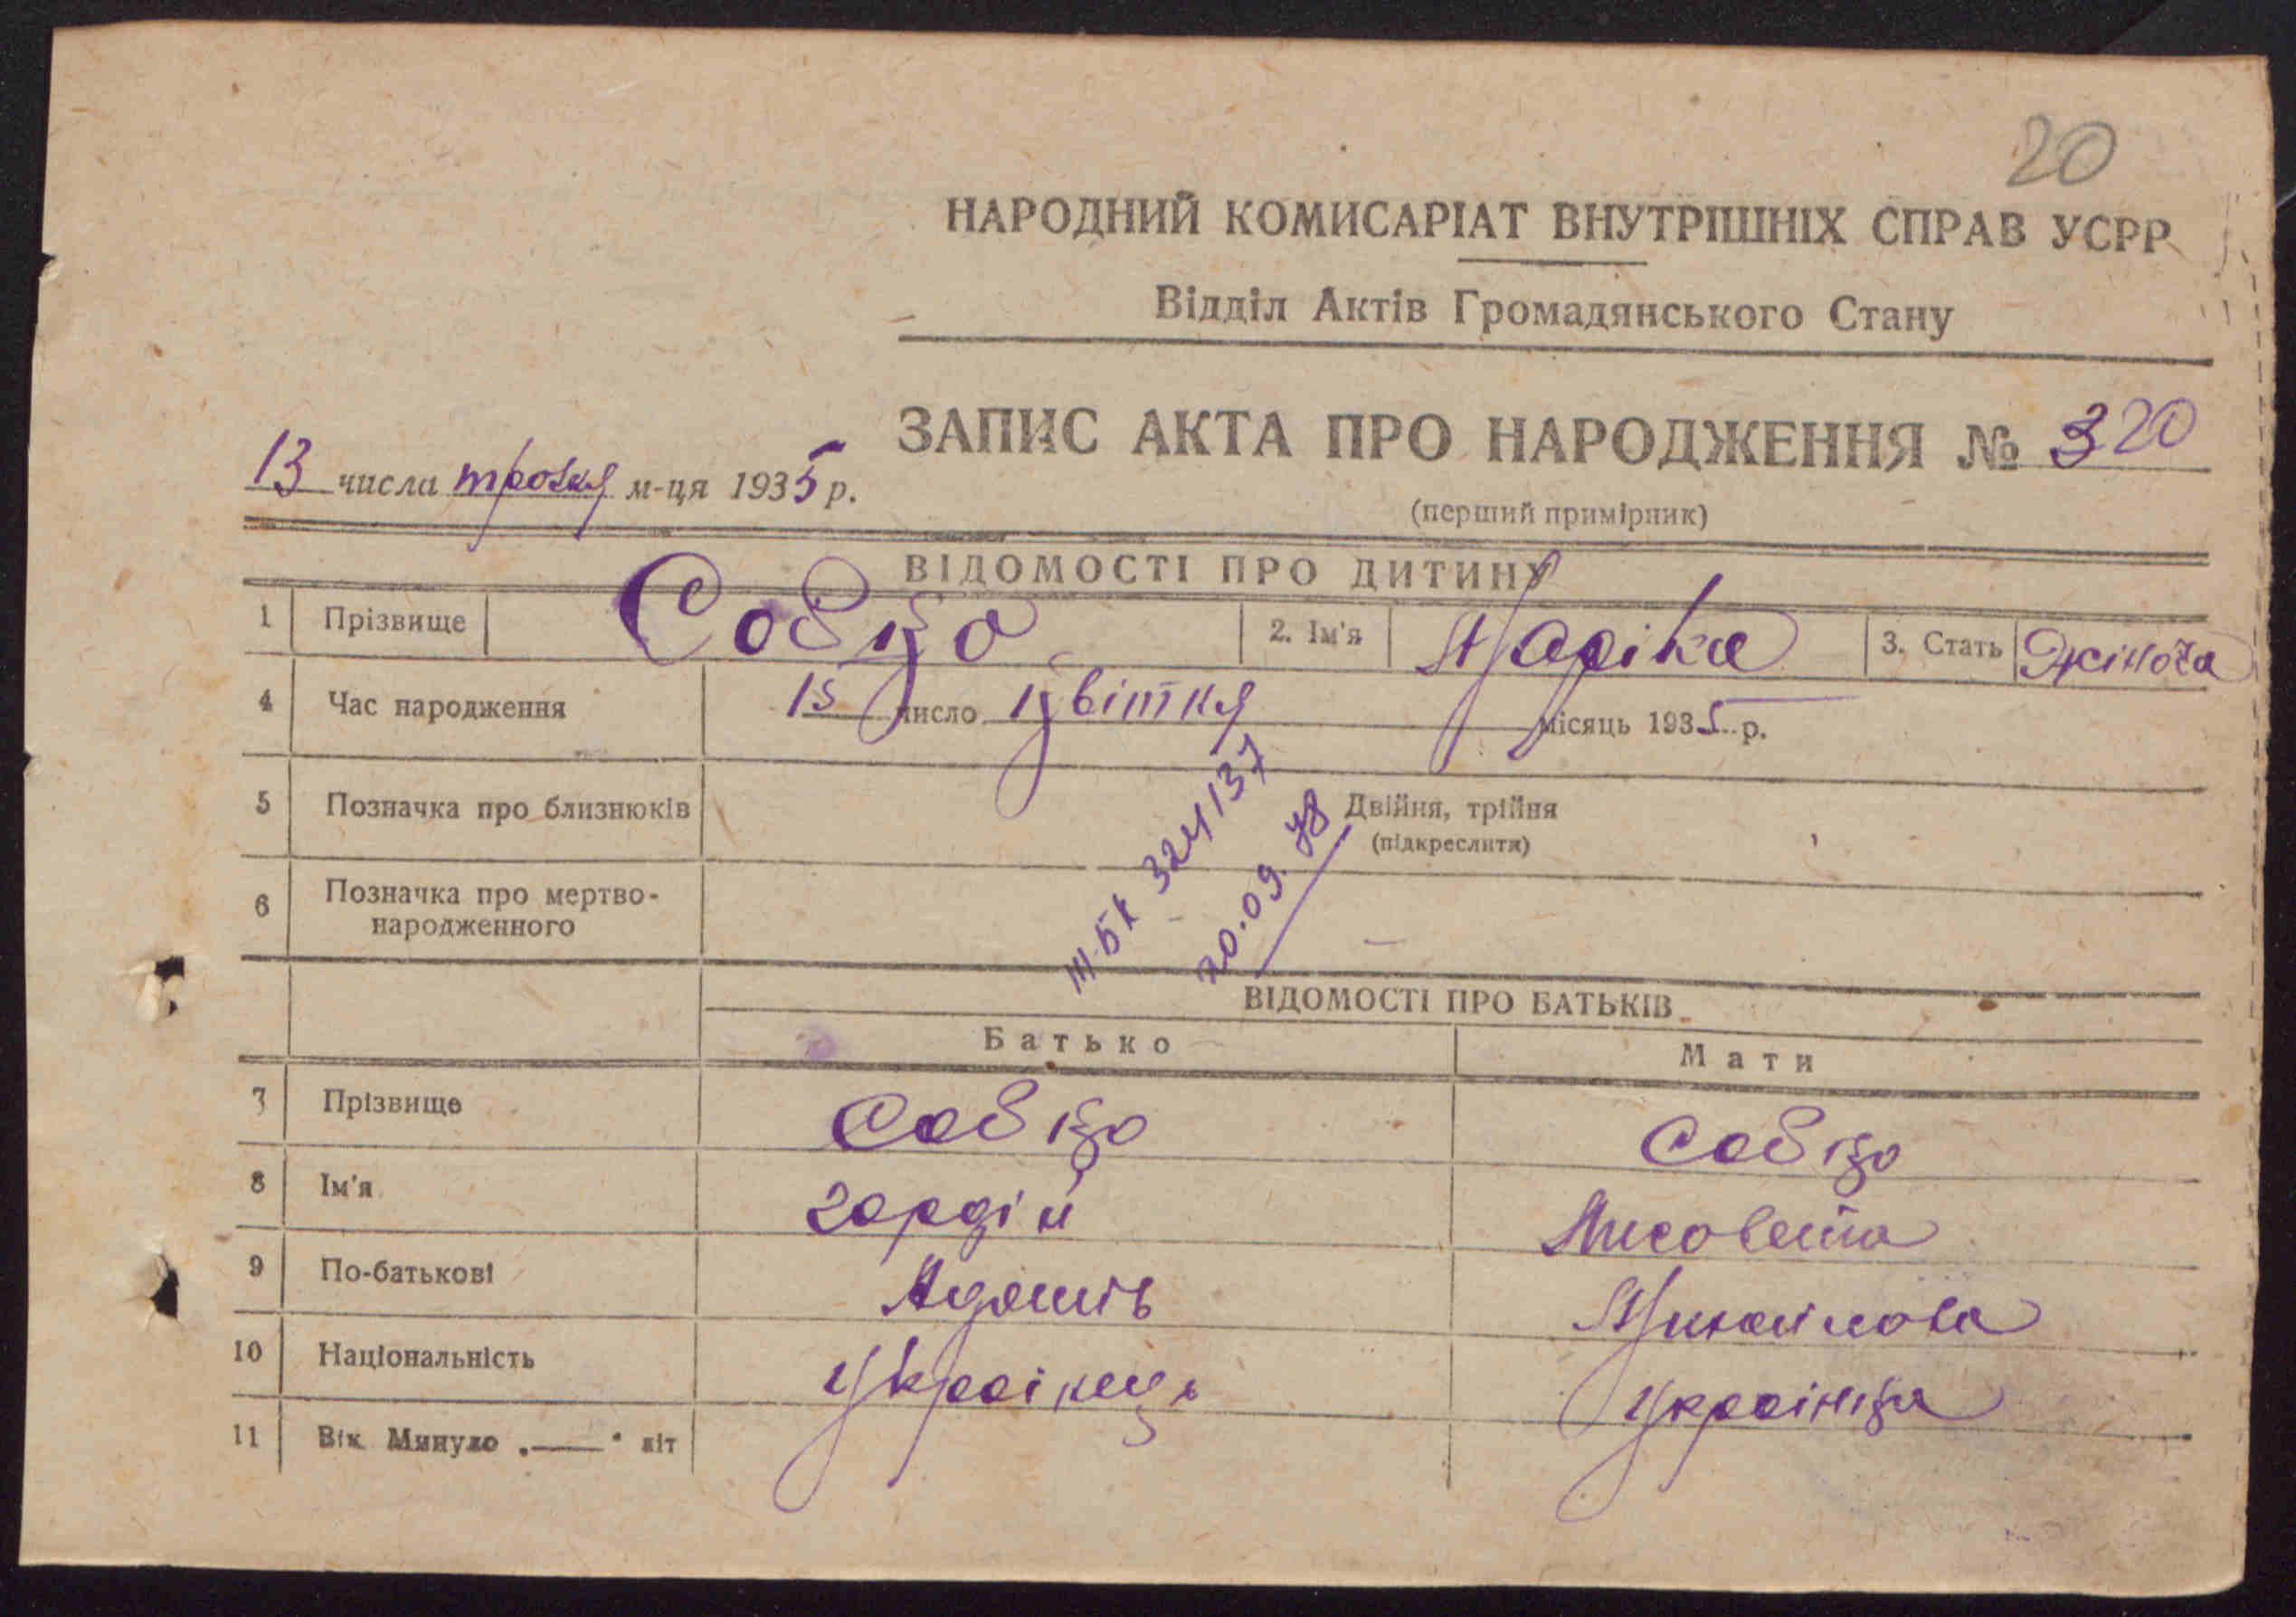 20
НАРОДНИЙ КОМИСАРІАТ ВНУТРІШНІХ СПРАВ УСРР
Відділ Актів Громадянського Стану
ЗАПИС АКТА ПРО НАРОДЖЕННЯ № 320
13 числа травня м-ця 1935 р.
(перший примірник)
ВІДОМОСТІ ПРО ДИТИНУ
1 Прізвище Собцо 2. Ім'я Маріка 3. Стать Жіноча
4 Час народження 15 число цвітня місяць 1935 р.
5 Позначка про близнюків Двійня, трійня
(підкреслити)
6 Позначка про мертво-
народженного
III-БК 324137
20.09.78
ВІДОМОСТІ ПРО БАТЬКІВ
Батько Мати
7 Прізвище Собцо Собцо
8 Ім'я Гордій Лисовета
9 По-батькові Адамів Михайлова
10 Національність Українець Українца
11 Вік. Минуло „——“ літ